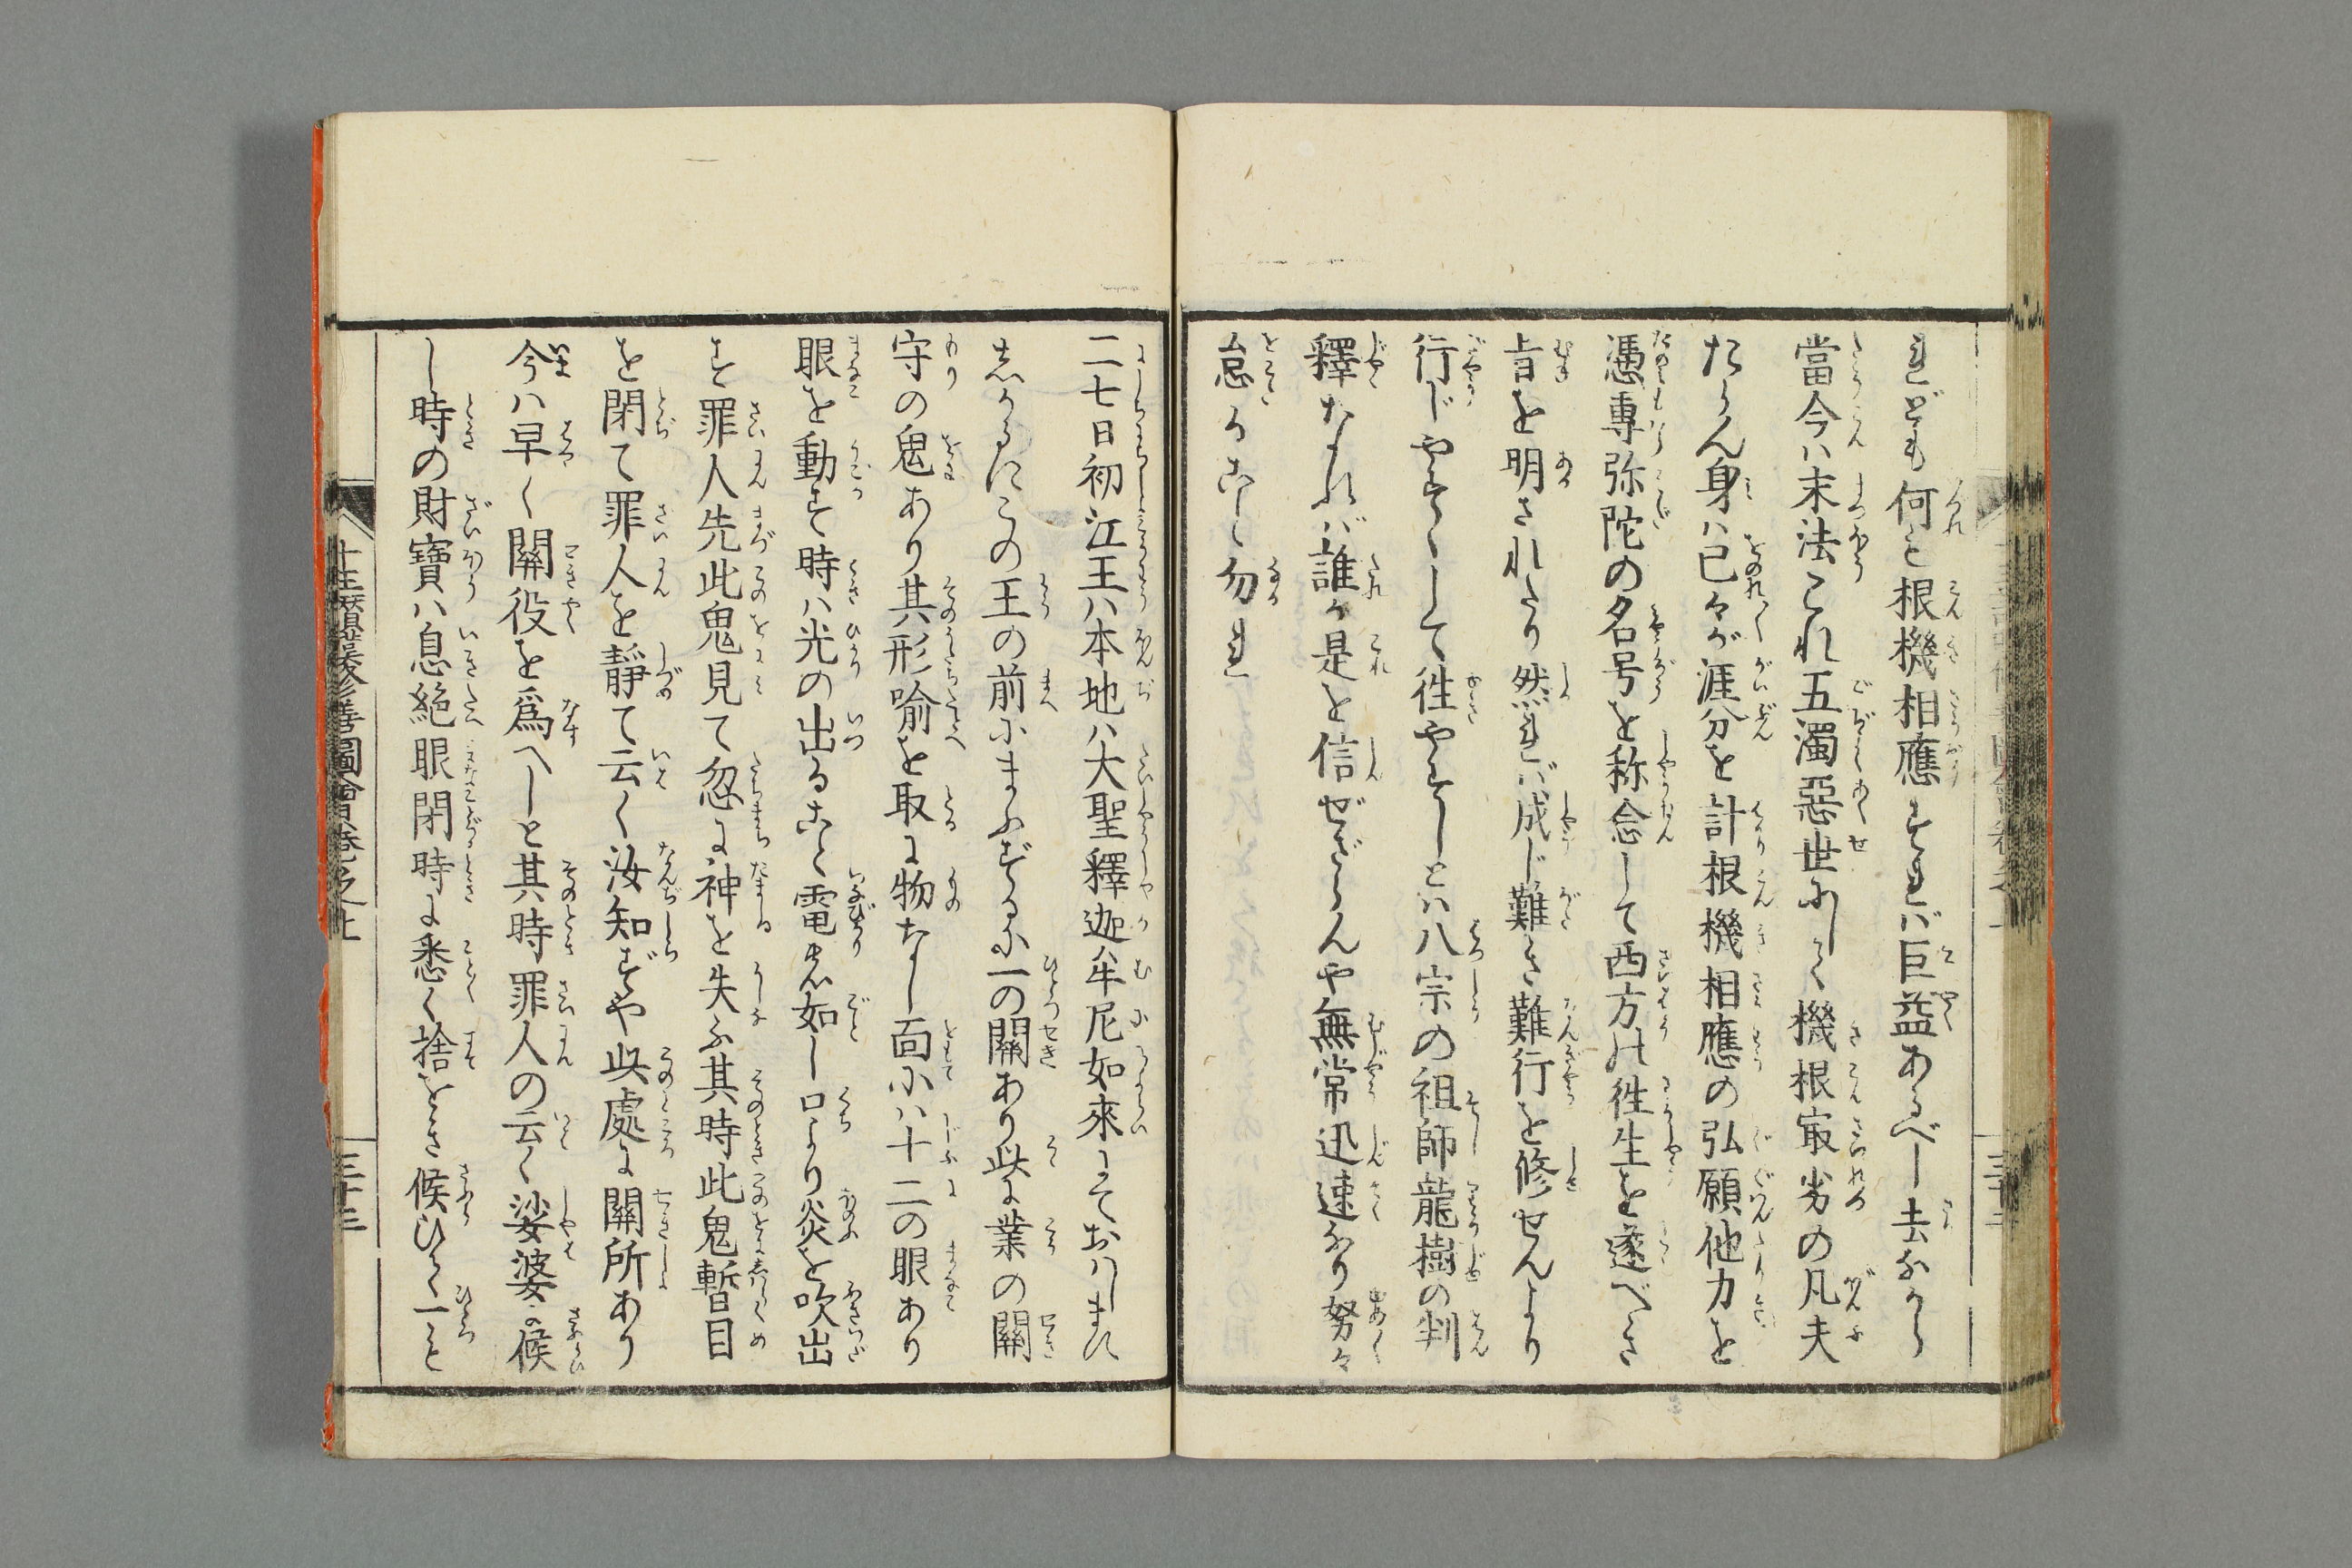 れども何と根機相應すれば巨益あるべし去ながら
當今ハ末法これ五濁惡世にして機根㝡劣の凡夫
たらん身ハ已々が涯分を計根機相應の弘願他力を
憑專弥陀の名号を称念して西方の徃生を遂べき
旨を明されたり然れバ成じ難き難行を修せんより
行じやすくして徃やすしとハ八宗の祖師龍樹の判
釋なれバ誰か是を信ぜざらんや無常迅速なり努々
怠ることく勿れ
二七日初江王ハ本地ハ大聖釋迦牟尼如來にておハします
しかるにこの王の前にまふずるに一の關あり此に業の關
守の鬼あり其形喩を取に物なし面にハ十二の眼あり
眼を動す時ハ光の出ること電の如し口より炎を吹出
す罪人先此鬼見て忽に神を失ふ其時此鬼暫目
を閉て罪人を靜て云く汝知ずや此處に關所あり
今ハ早く關役を爲へしと其時罪人の云く娑婆に候
し時の財寶ハ息絶眼閉時に悉く捨をき候ひて一と
十王讃嘆修善圖會卷之上
三十三